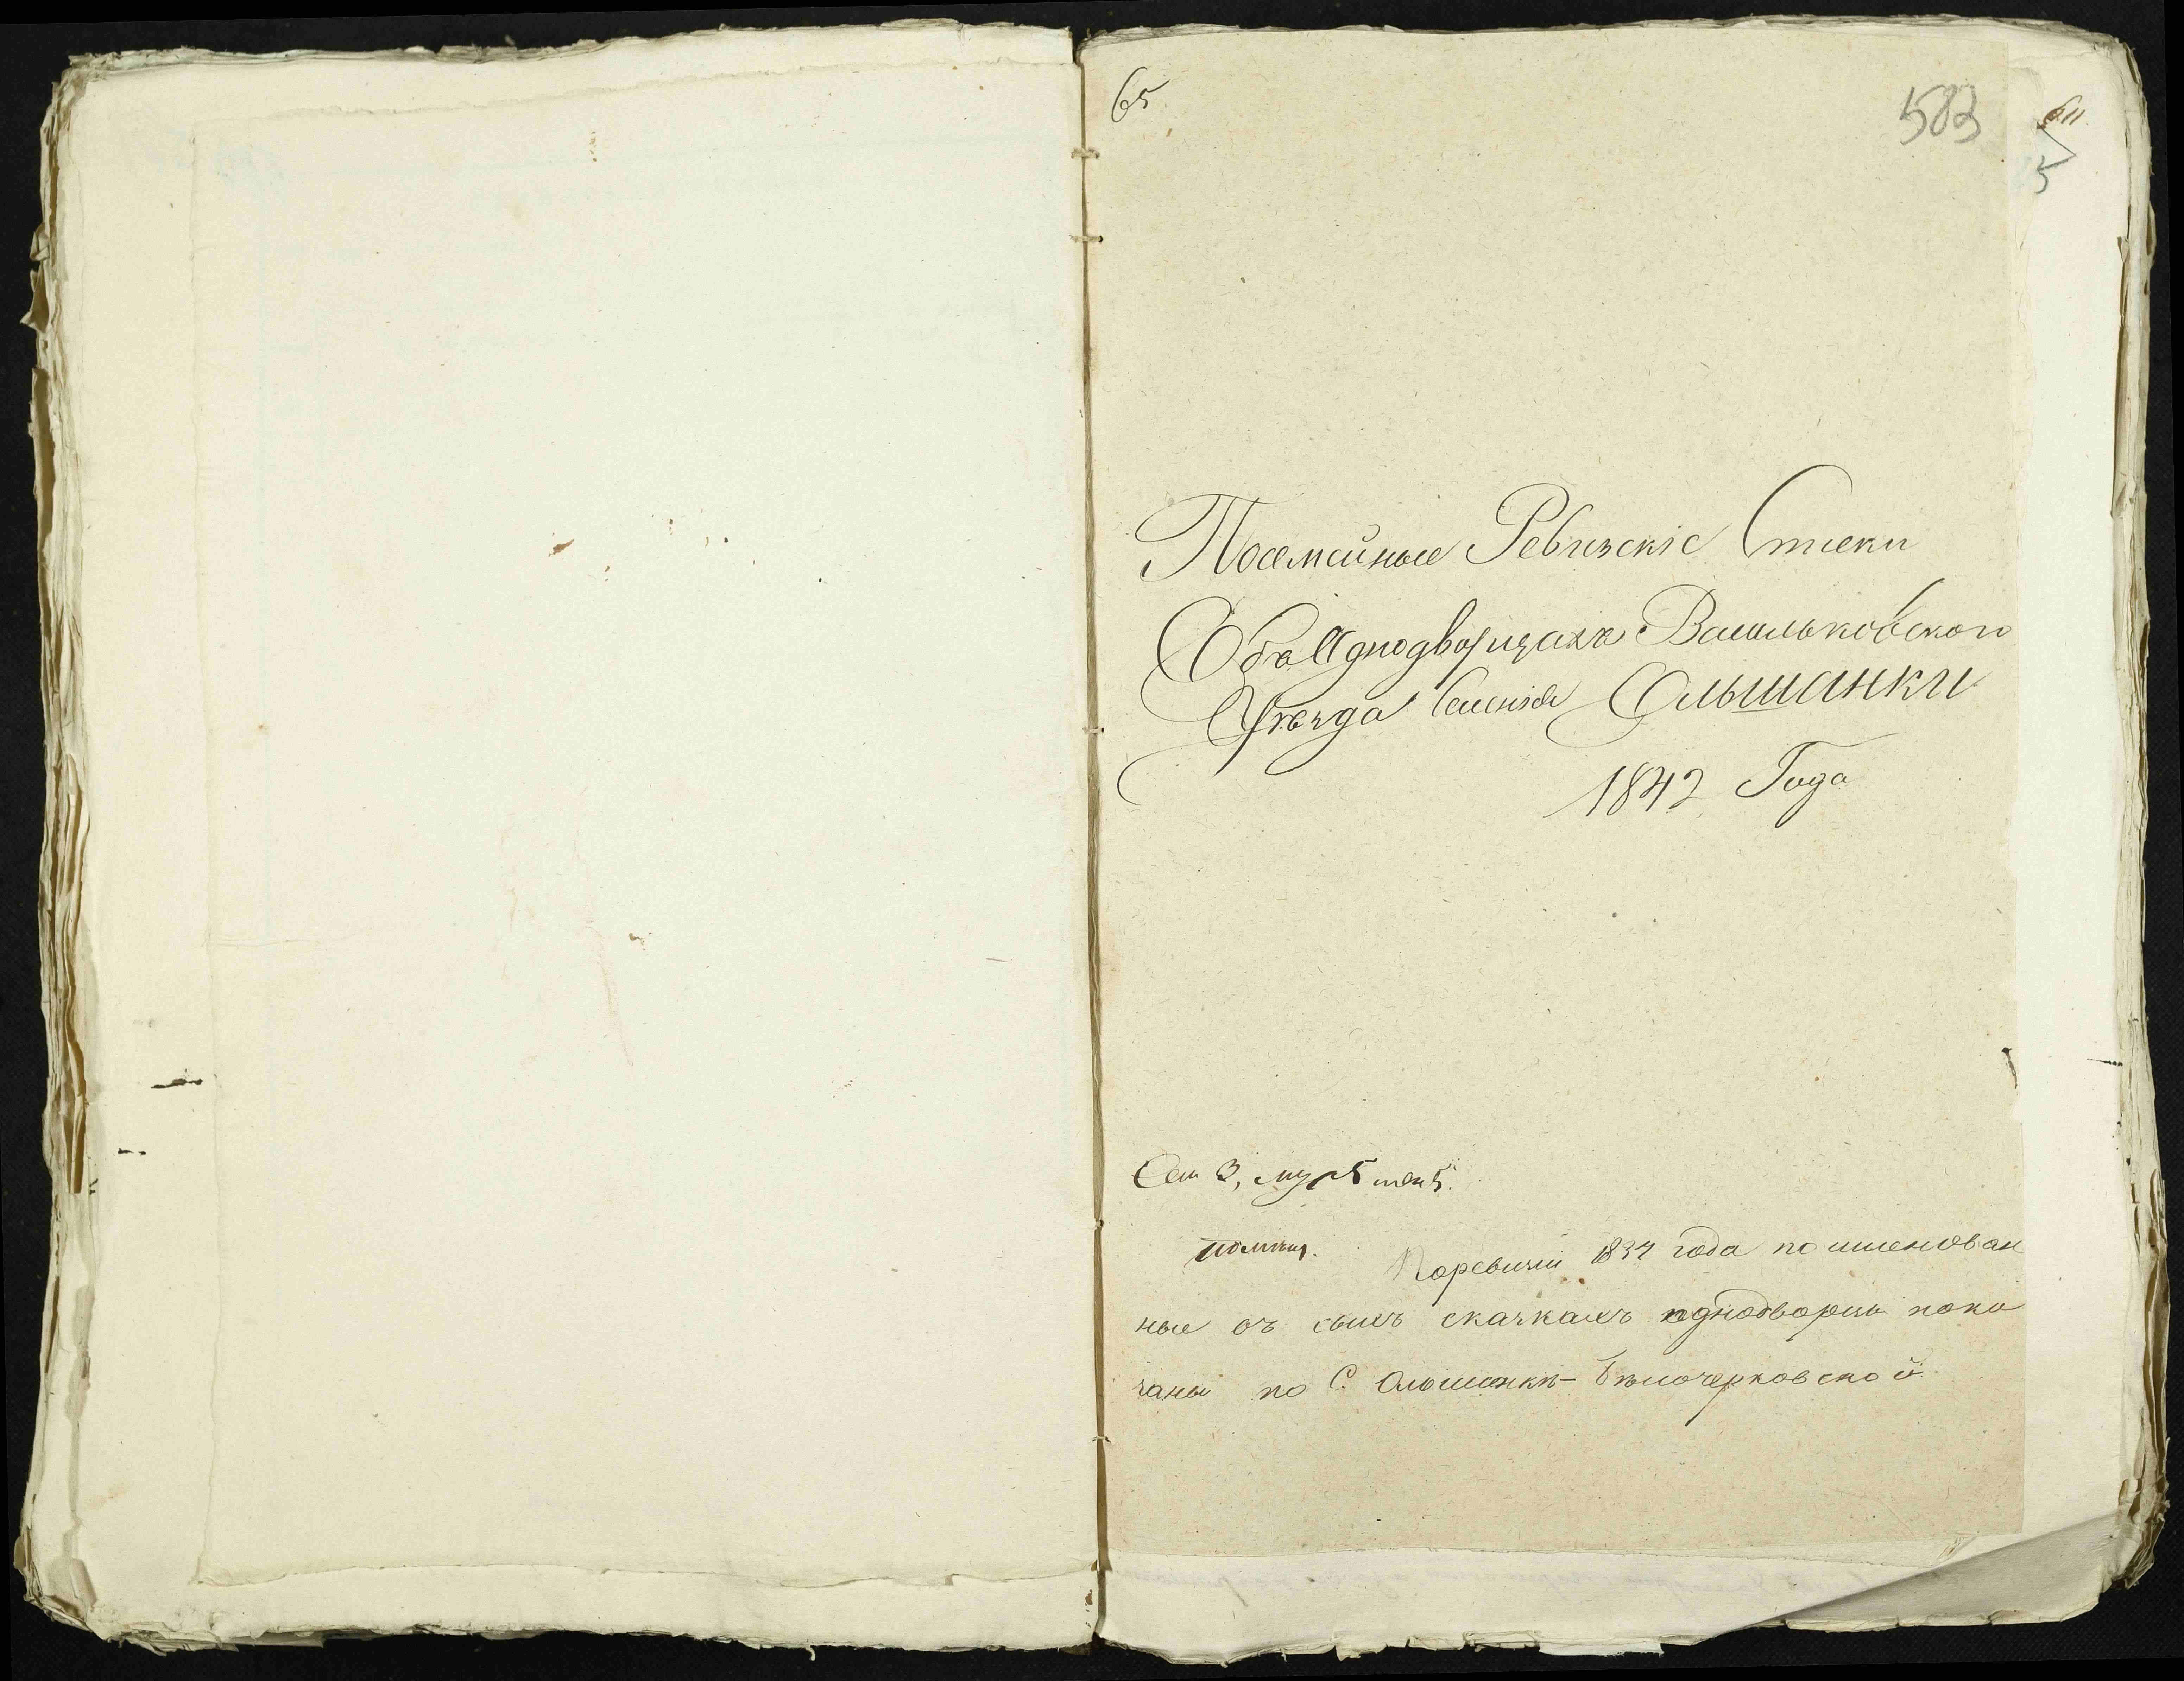 65
583
611
5
Посемейные Ревизскіе Списки
Объ Однодворцахъ Васильковского
Уѣзда Селенія Ольшанки
1842 Года
Сем 3, муж 5 жен 5.
По ревизіи 1834 года поименован
ные въ сихъ сказкахъ однодворцы пока
заны по С. Ольшанкѣ-Бѣлочерковской